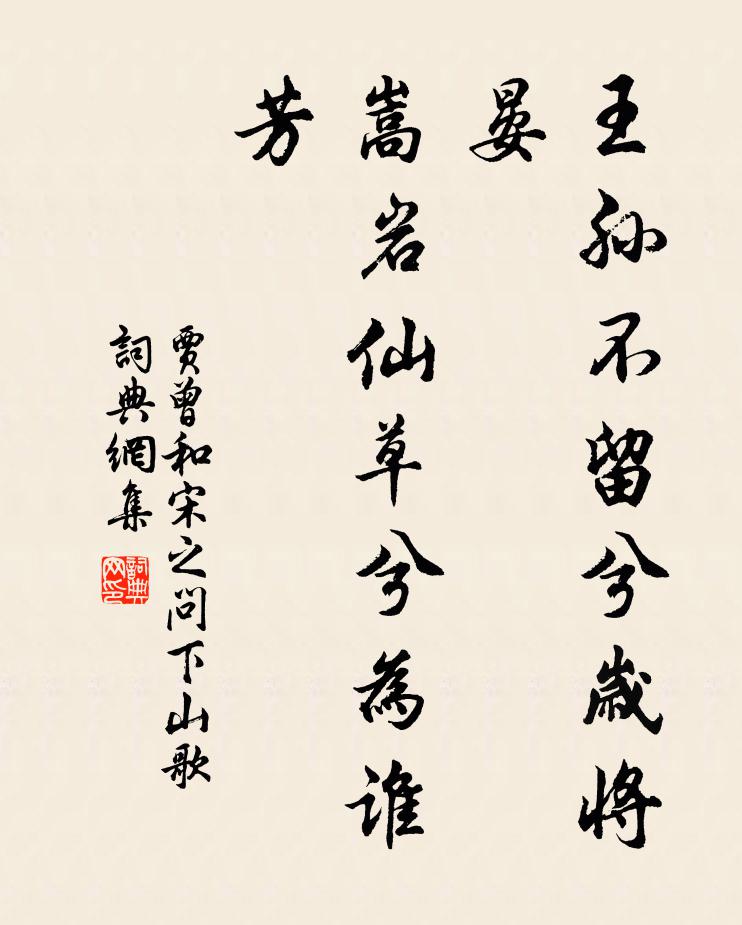 王孙不留兮歲將
晏
嵩岩仙草兮為誰
芳
賈曾和宋之问下山歌
詞典網集
詞典网印